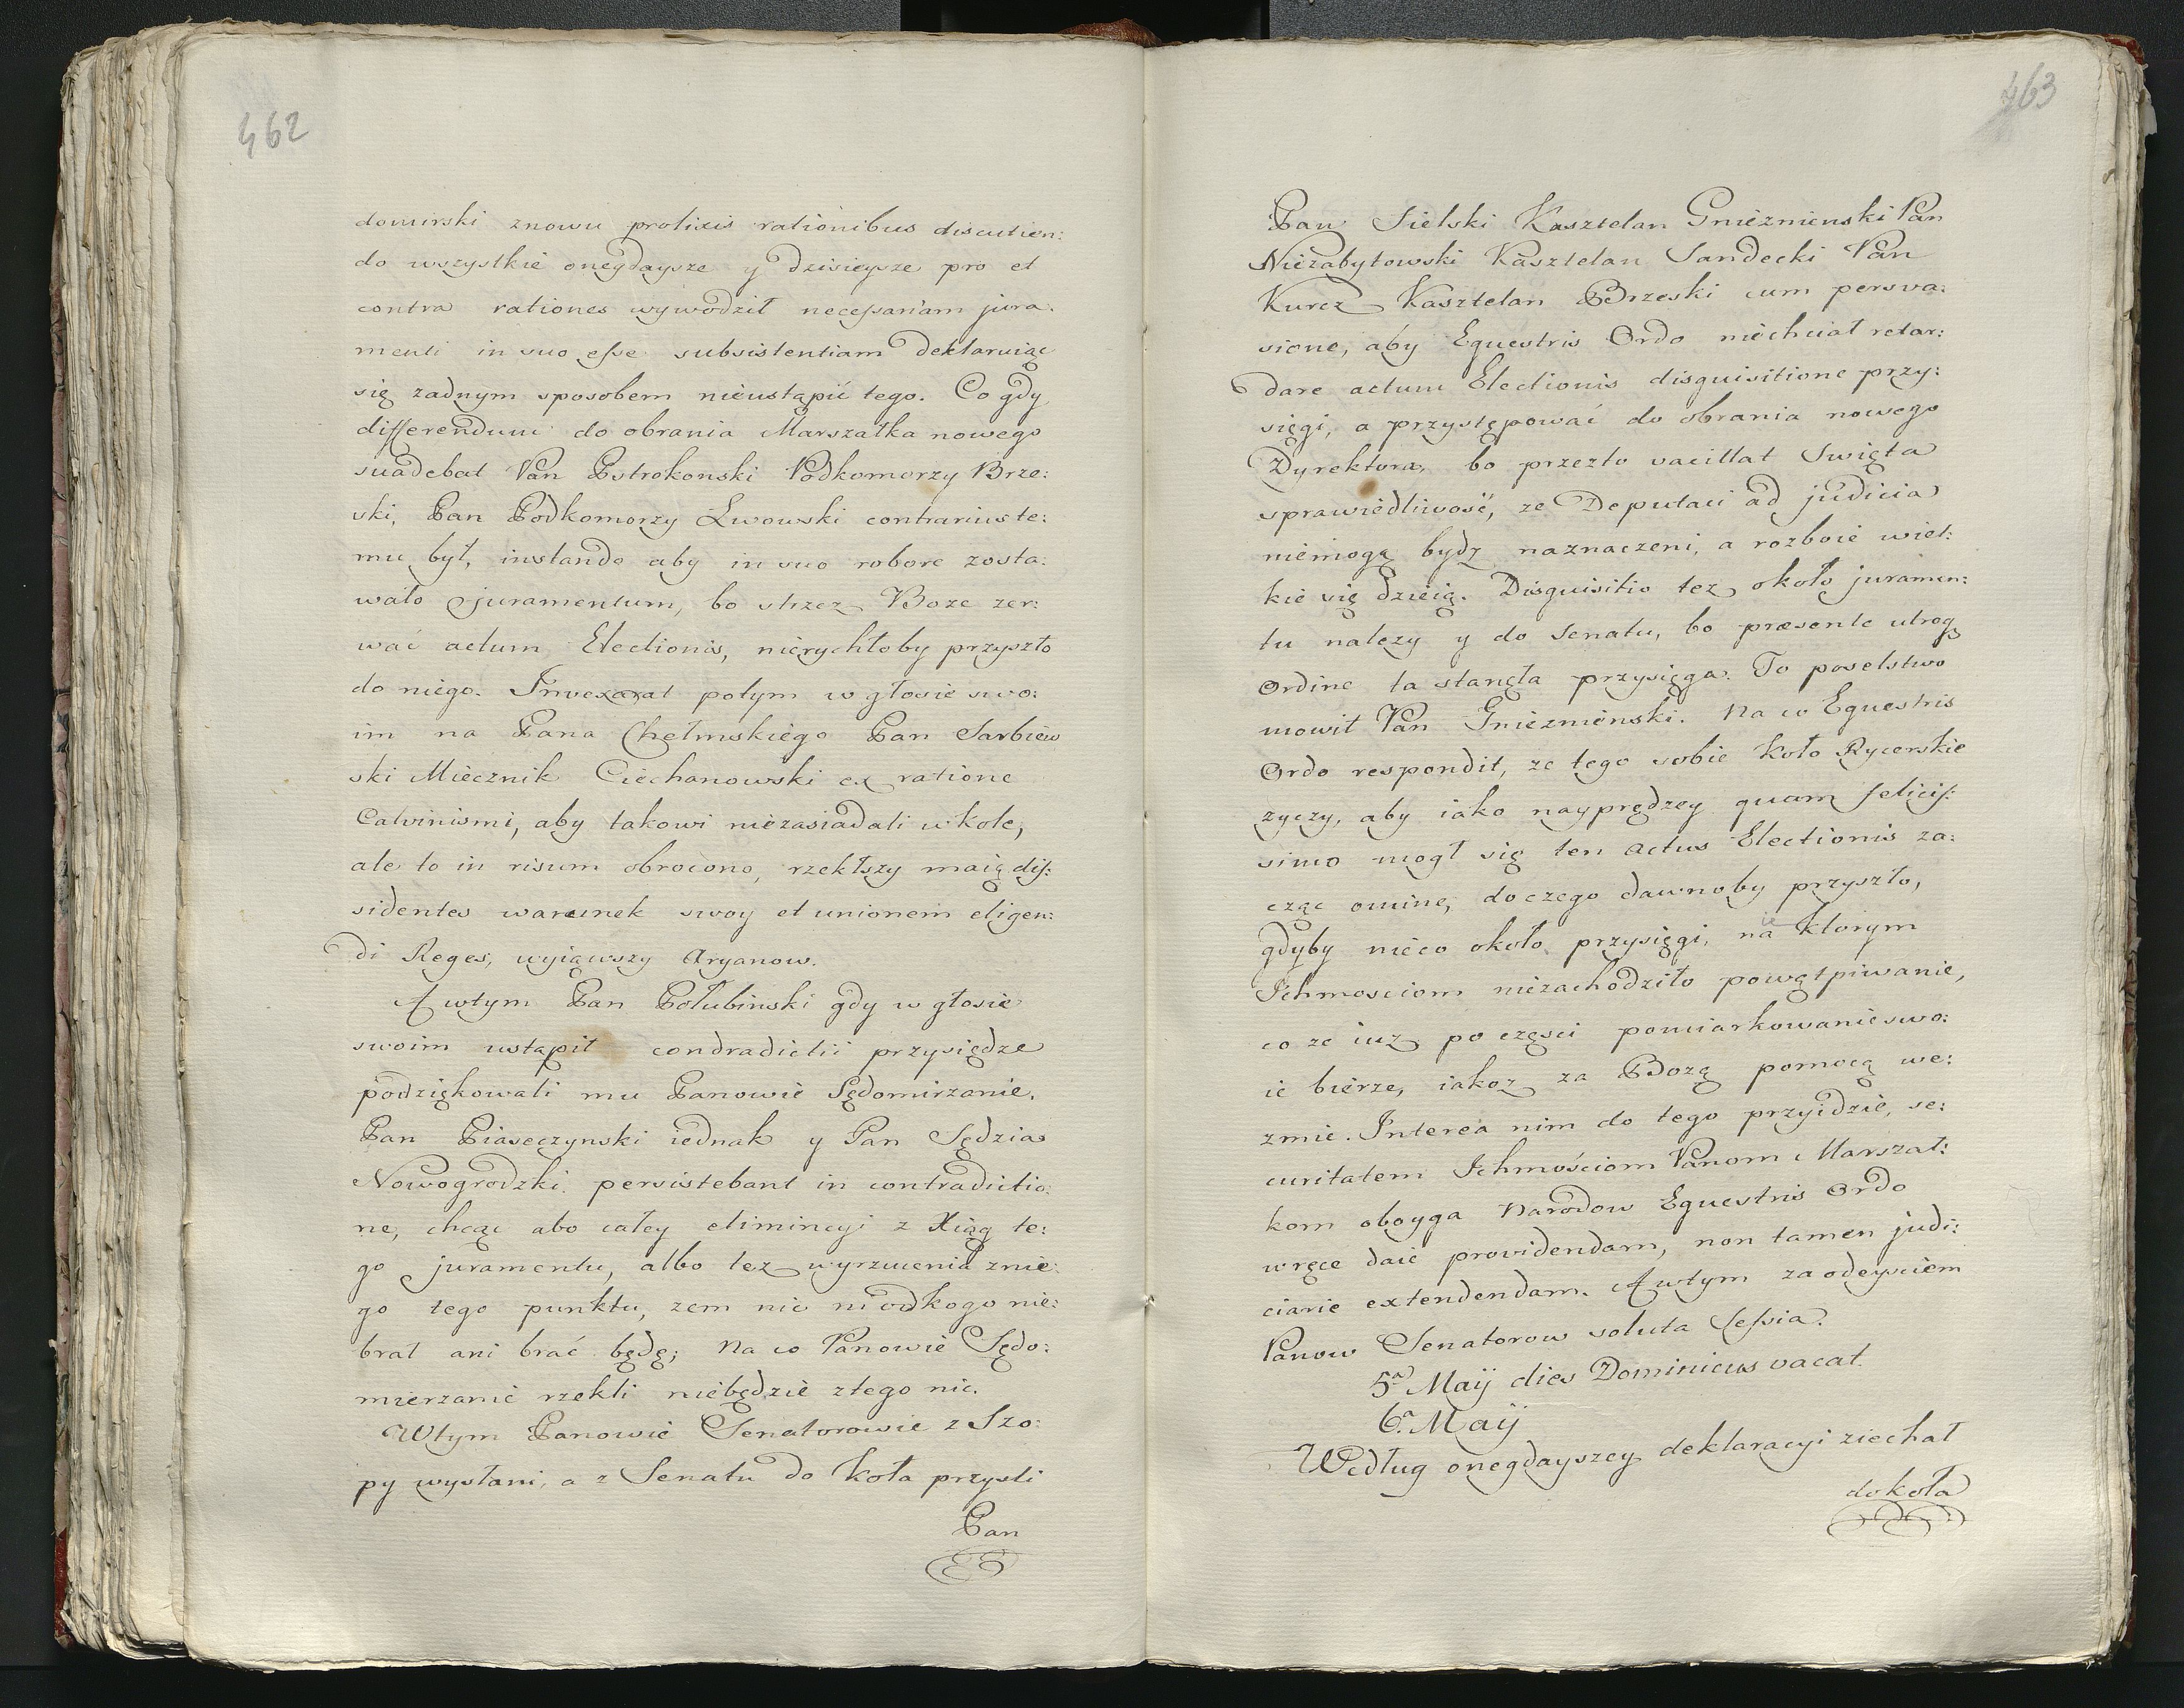 462
domirski znowu prolixis rationibus discutien:
do wszystkie onegdaysze y dzisieysze pro et
contra rationes wywodził necessariam jura:
menti in suo esse subsistentiam deklaruiąc
się zadnym sposobem nieustąpić tego. Co gdy
differendum do obrania Marszałka nowego
suadebat Pan Ostrokonski Podkomorzy Brze:
ski, Pan Podkomorzy Lwowski contrarius te:
mu był, instando aby in suo robore zosta:
wało juramentum, bo strzez Boze zer:
wać actum Electionis, nierychłoby przyszło
do niego. Invexerat potym w głosie swo:
im na Pana Chełmskiego Pan Sarbiew
ski Miecznik Ciechanowski ex ratione
Calvinismi, aby takowi niezasiadali w kole,
ale to in risum obrocono, rzekłszy maią dis:
sidentes warunek swoy et unionem eligen:
di Reges, wyiąwszy Aryanow.
A wtym Pan Połubinski gdy w głosie
swoim ustąpił condradictii przysiędze
podziękowali mu Panowie Sędomirzanie.
Pan Piaseczynski iednak y Pan Sędzia
Nowogrodzki persistebant in contradictio:
ne, chcąc abo całey elimincyi z Xiąg te:
go juramentu, albo tez wyrzucenia znie:
go tego punktu, zem nic ni odkogo nie:
brał ani brać będę; Na co Panowie Sędo:
mierzanie rzekli niebędzie ztego nic.
Wtym Panowie Senatorowie z Szo:
py wysłani, a z Senatu do koła przysli
Pan
463
Pan Sielski Kasztelan Gniezninski Pan
Niezabytowski Kasztelan Sandecki Pan
Kurcz Kasztelan Brzeski cum persva:
sione, aby Equestris Ordo niechciał retar:
dare actum Electionis disquisitione przy:
sięgi, a przystępować do obrania nowego
Dyrektora, bo przezto vacillat Swięta
sprawiedliwość, ze Deputaci ad judicia
niemogą bydz naznaczeni, a rozboie wiel:
kie się dzieią. Disquisitio tez około juramen:
tu nalezy y do Senatu, bo præsente utroq
Ordine ta stanęła przysięga. To poselstwo
mowił Pan Gniezninski. Na co Equestris
Ordo respondit, ze tego sobie Koło Rycerskie
zyczy, aby iako nayprędzey quam felicis:
simo mogł się ten actus Electionis za:
cząc omine, do czego dawnoby przyszło,
gdyby nieco około przysięgi, na ktorym
Ichmosciom niezachodziło powątpiwanie,
co ze iuz po częsci pomiarkowanie swo:
ie bierze, iakoz za Bozą pomocą we:
zmie. Interea nim do tego przyidzie, se:
curitatem Ichmościom Panom Marszał:
kom oboyga Narodow Equestris Ordo
w ręce daie providendam, non tamen judi:
ciarie extendendam. A wtym za odeysciem
Panow Senatorow soluta sessia.
5a Maij dies Dominicus vacat.
6.a Maij
Według onegdayszey deklaracyi ziechał
do koła